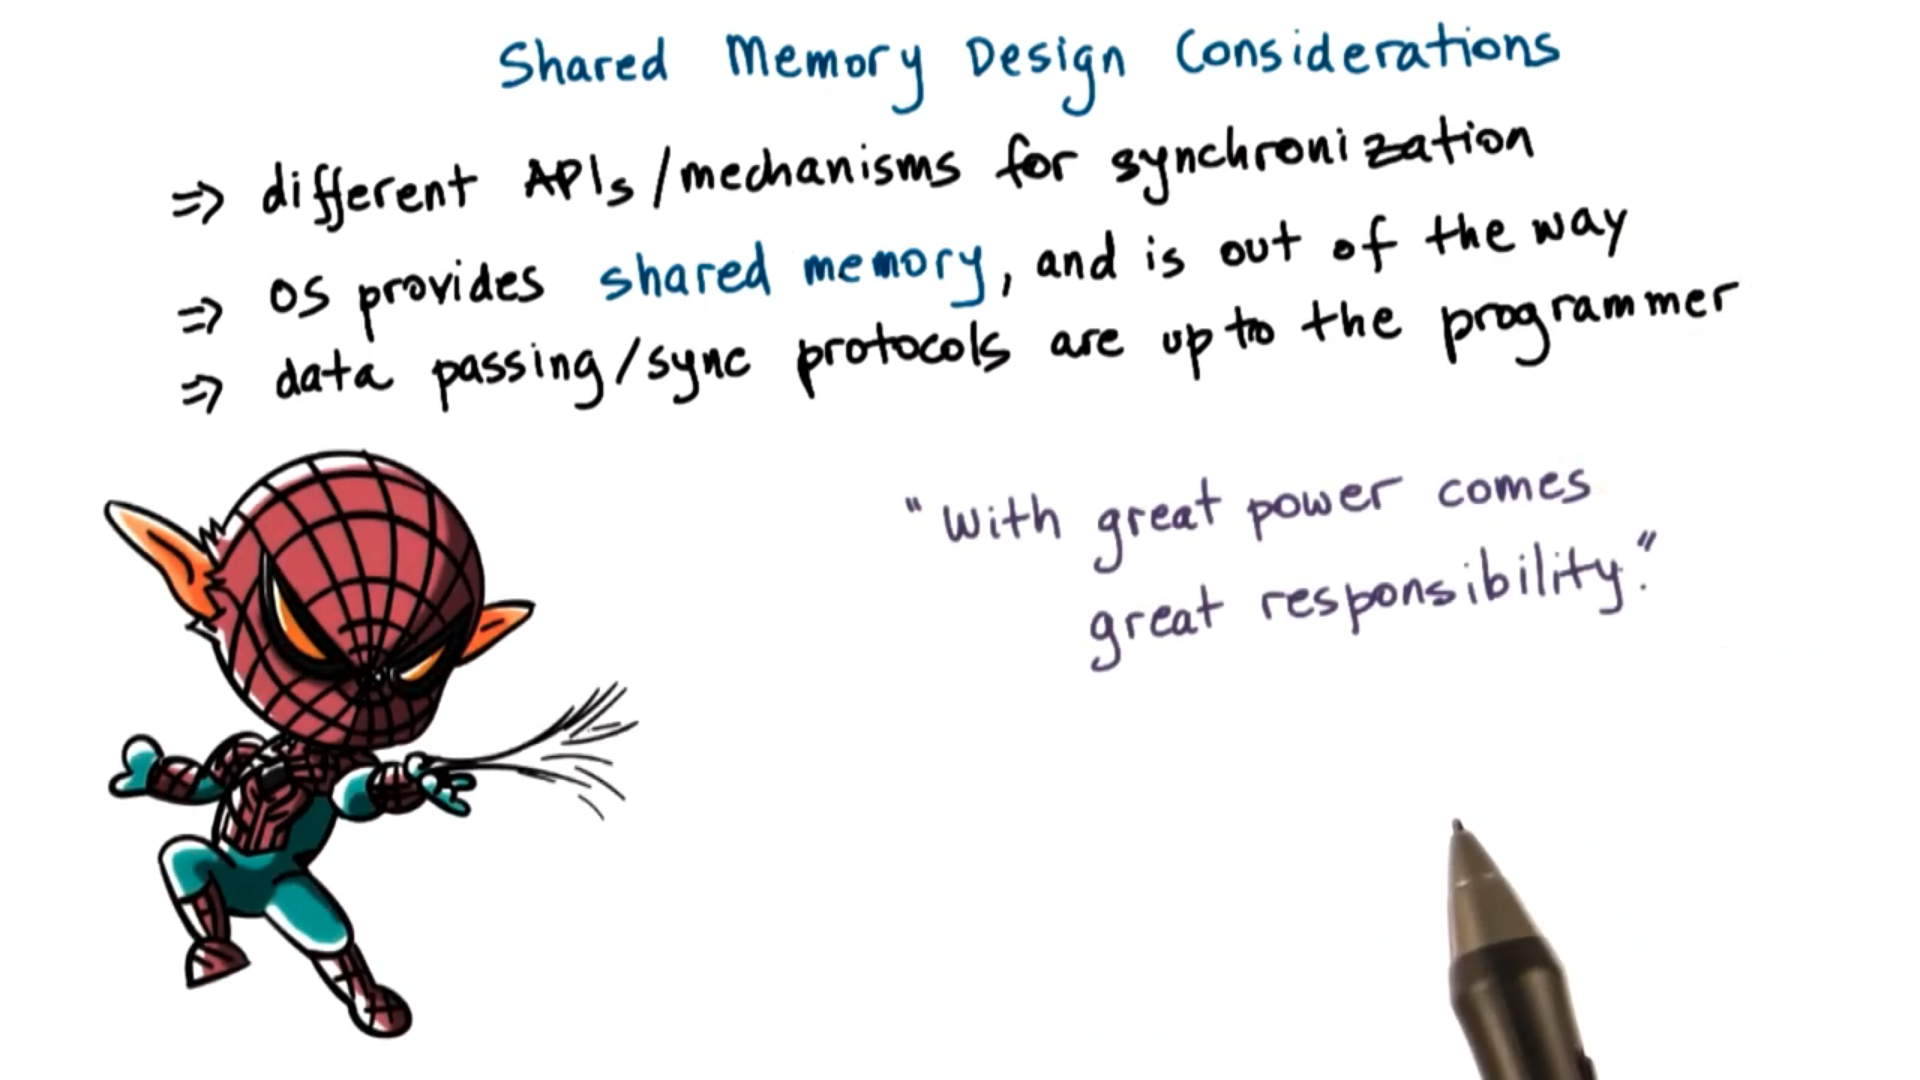 Shared Memory Design Considerations
=> different APIs/mechanisms for synchronization
=> OS provides shared memory, and is out of the way
=> data passing/sync protocols are up to the programmer
"With great power comes
great responsibility."